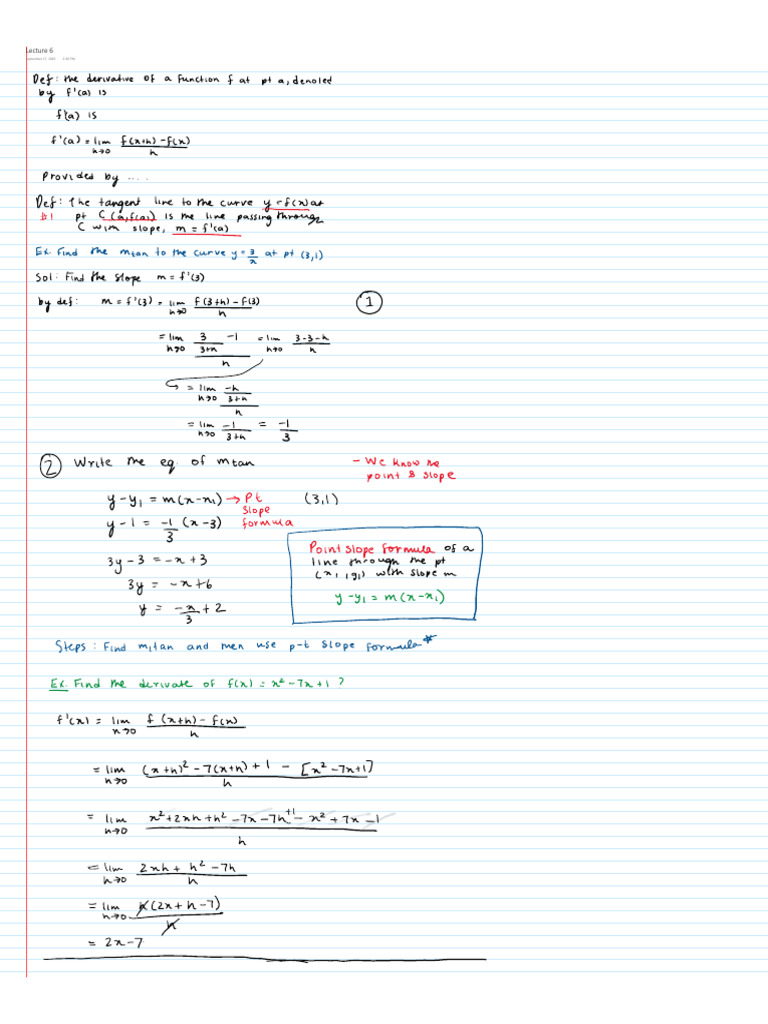 Lecture 6
2:00 PM
Def: the derivative of a function f at pt a, denoted
by f'(a) is
f'(a) is
f'(a) = lim h→0 f(x+h) - f(x) / h
Provided by ....
Def: The tangent line to the curve y = f(x) at
#1 pt C (a, f(a)) is the line passing through
C with slope, m = f'(a)
Ex. Find the mtan to the curve y = 3/x at pt (3,1)
Sol: Find the slope m = f'(3)
by def: m = f'(3) = lim h→0 f(3+h) - f(3) / h
①
= lim h→0 3/3+h - 1 / h = lim h→0 3-3-h / h
= lim h→0 -h/3+h / h
= lim h→0 -1/3+h = -1/3
② Write the eq. of mtan
- We know the
point & slope
y - y₁ = m(x - x₁) → Pt
slope
formula
(3,1)
y - 1 = -1/3 (x - 3)
3y - 3 = -x + 3
3y = -x + 6
y = -x/3 + 2
Point slope formula of a
line through the pt
(x₁, y₁) with slope m
y - y₁ = m(x - x₁)
Steps: Find mtan and then use p-t slope formula*
Ex. Find the derivate of f(x) = x² - 7x + 1 ?
f'(x) = lim h→0 f(x+h) - f(x) / h
= lim h→0 (x+h)² - 7(x+h) + 1 - [x² - 7x + 1] / h
= lim h→0 x² + 2xh + h² - 7x - 7h + 1 - x² + 7x - 1 / h
= lim h→0 2xh + h² - 7h / h
= lim h→0 h(2x + h - 7) / h
= 2x - 7